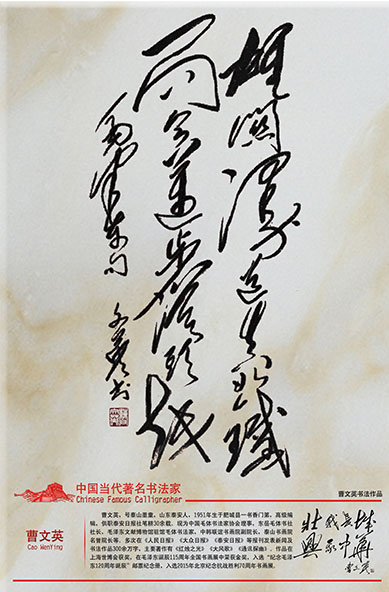 雄关漫道真如铁
而今迈步从头越
毛泽东句
文英书
中国当代著名书法家
Chinese Famous Calligrapher
曹文英书法作品
曹文英
Cao WenYing
曹文英，号泰山童叟，山东泰安人，1951年生于肥城县一书香门第。高级编
辑，供职泰安日报社笔耕30余载。现为中国毛体书法家协会理事，东岳毛体书社
社长，毛泽东文献博物馆馆毛体书法家，中韩联谊书画院副院长，泰山书画院
名誉院长等。多次在《人民日报》《大众日报》《泰安日报》等报刊发表新闻与
书法作品300余万字，主要著作有《红烛之光》《大风歌》《通讯探幽》。作品在
上海世博会获奖，在毛泽东诞辰115周年全国书画展中荣获金奖。入选“纪念毛泽
东120周年诞辰”邮票纪念册，入选2015年北京纪念抗战胜利70周年书画展。
壮我长城
兴我中华